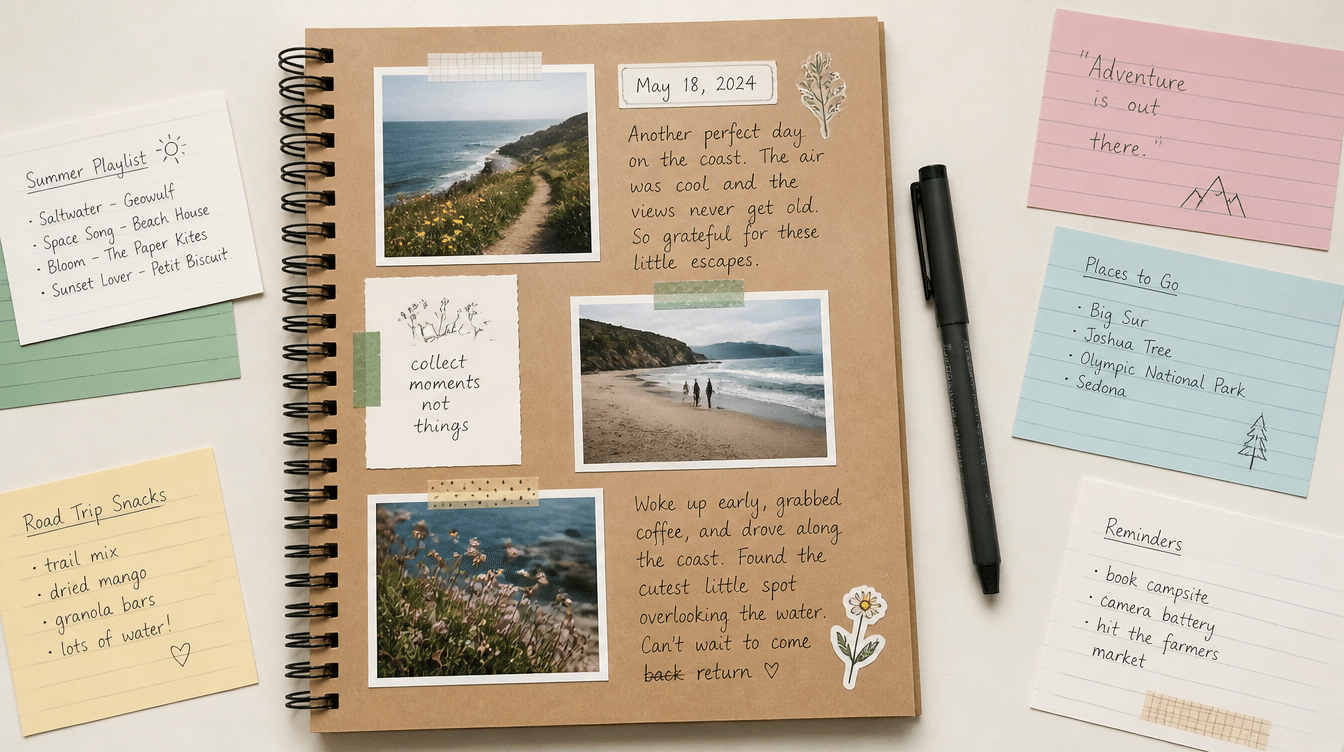 Summer Playlist
· Saltwater – Geowulf
· Space Song – Beach House
· Bloom – The Paper Kites
· Sunset Lover – Petit Biscuit
Road Trip Snacks
· trail mix
· dried mango
· granola bars
· lots of water!
May 18, 2024
Another perfect day
on the coast. The air
was cool and the
views never get old.
So grateful for these
little escapes.
collect
moments
not
things
Woke up early, grabbed
coffee, and drove along
the coast. Found the
cutest little spot
overlooking the water.
Can't wait to come
back return ♡
"Adventure
is out
there."
Places to Go
· Big Sur
· Joshua Tree
· Olympic National Park
· Sedona
Reminders
· book campsite
· camera battery
· hit the farmers
market